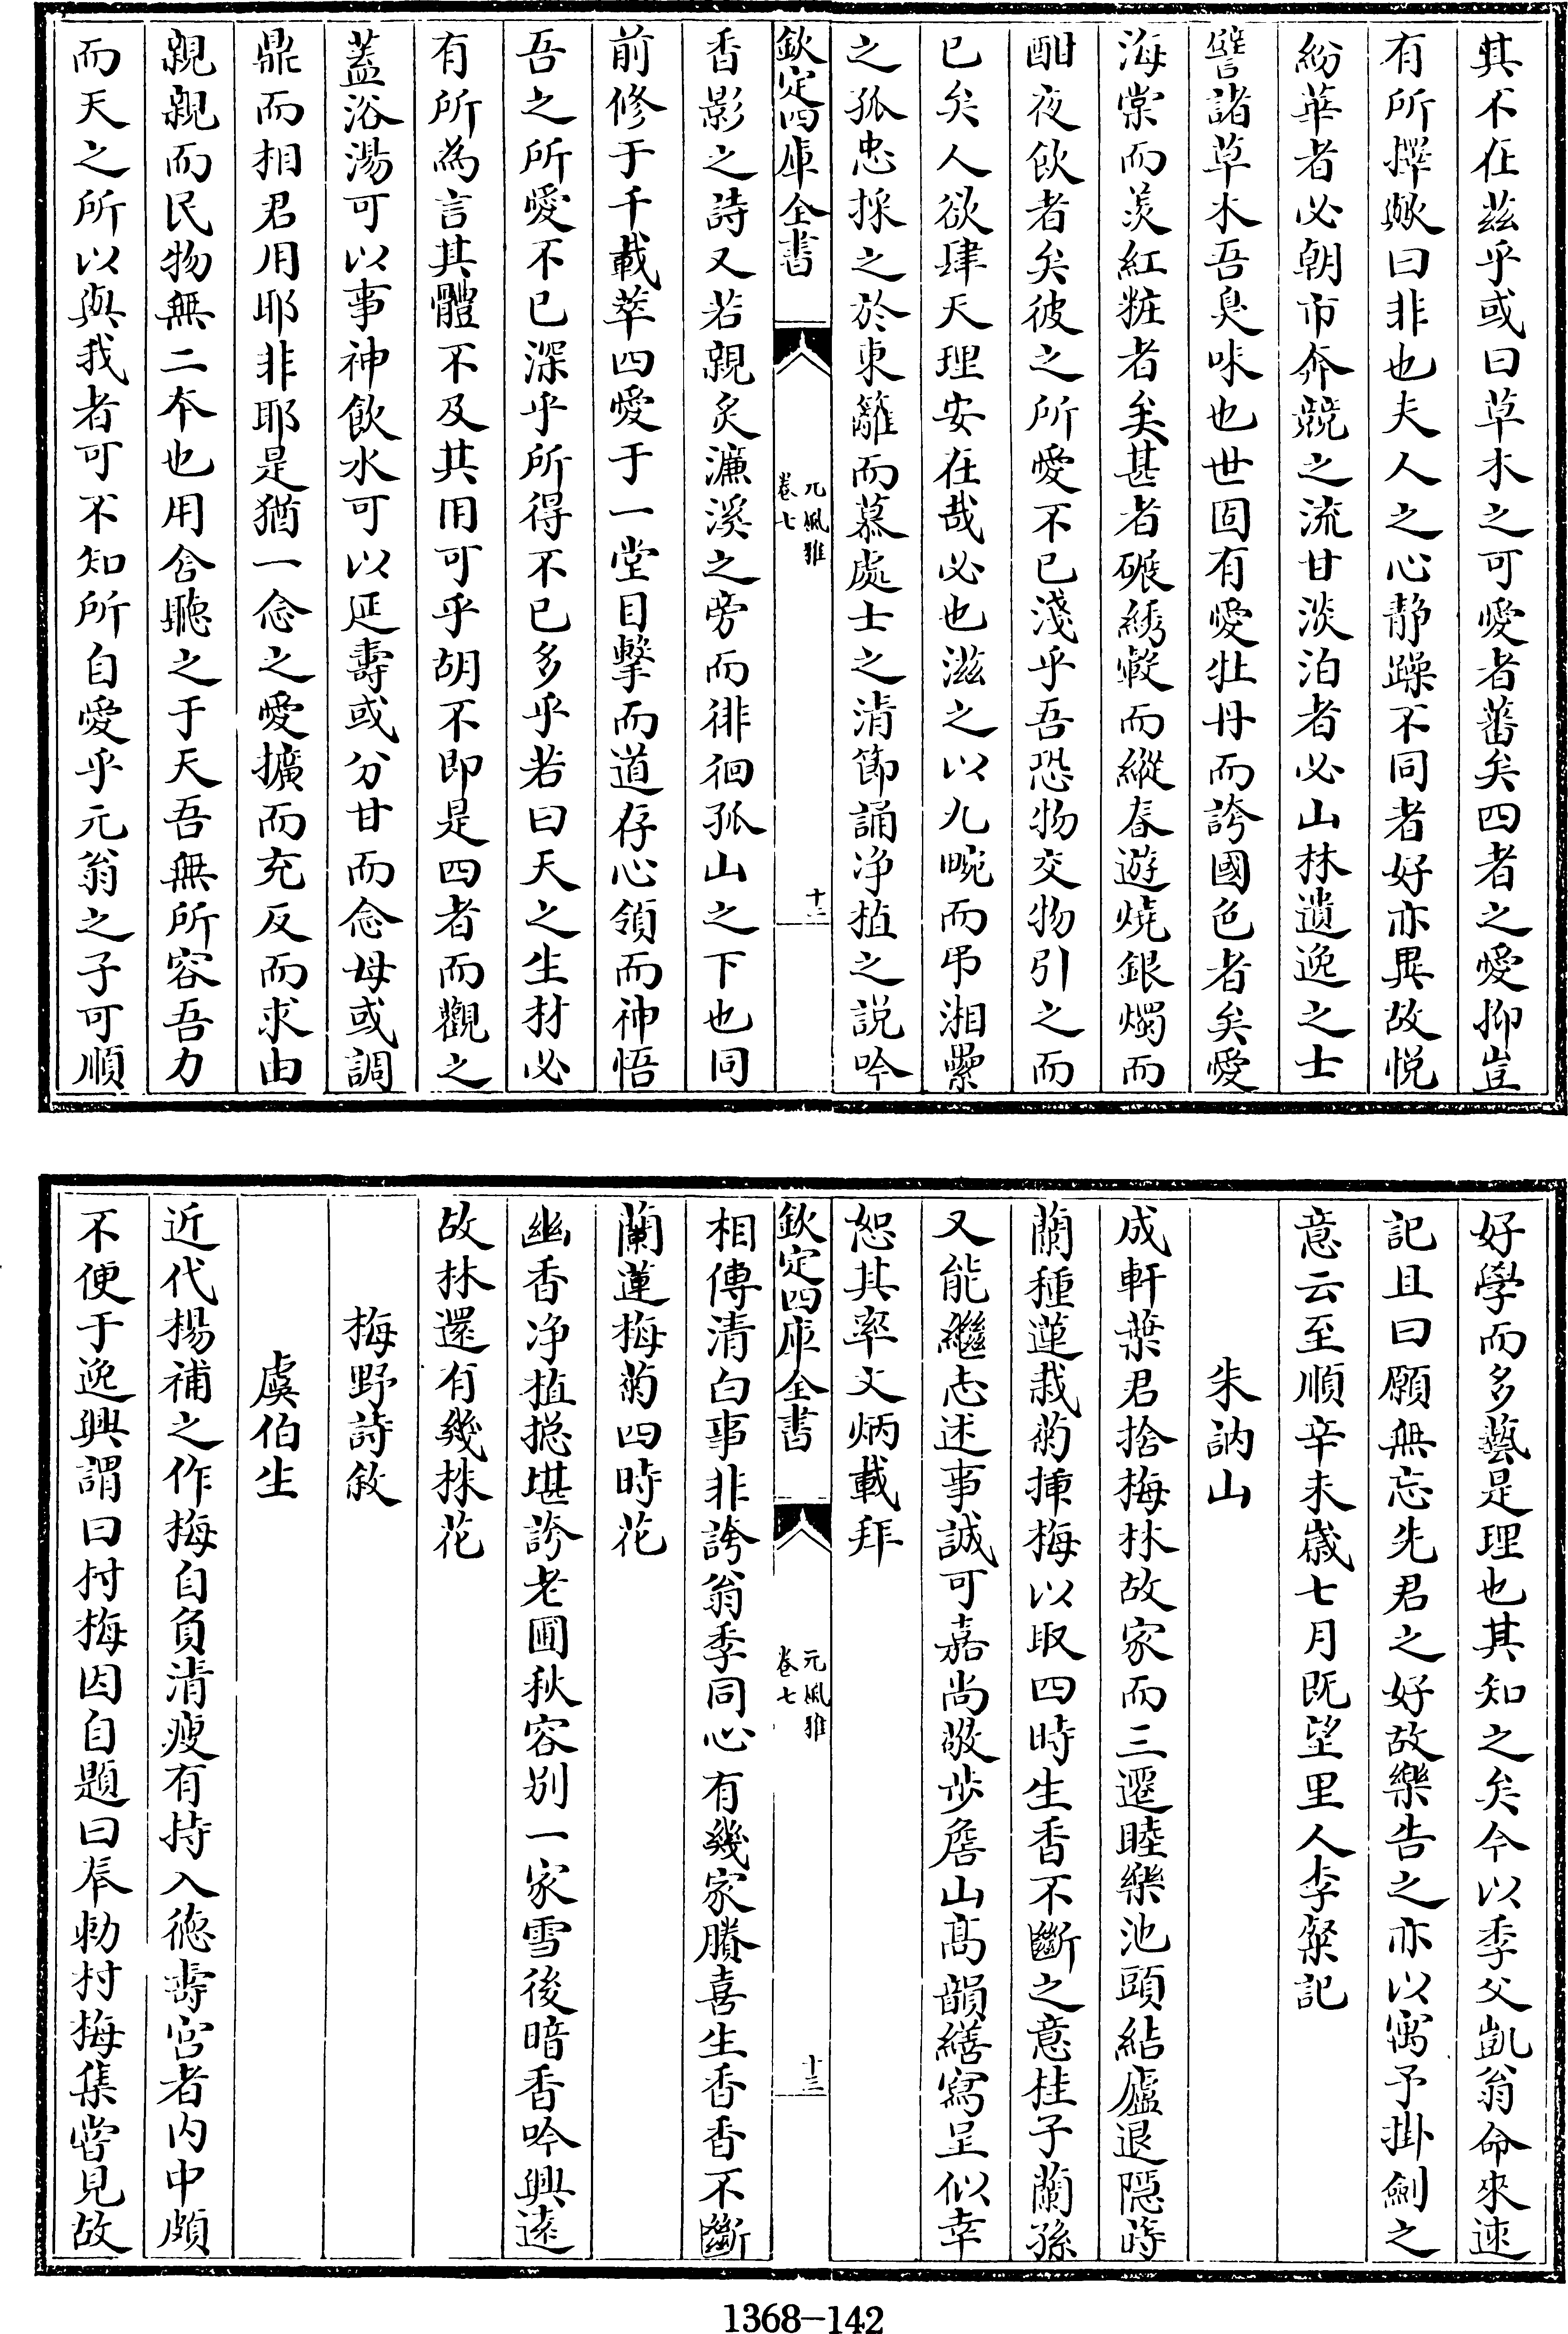 其不在茲乎或曰草木之可愛者蕃矣四者之愛抑豈
有所擇歟曰非也夫人之心静躁不同者好亦異故悦
紛華者必朝市奔競之流甘淡泊者必山林遺逸之士
譬諸草木吾臭味也世固有愛牡丹而誇國色者矣愛
海棠而羡紅粧者矣甚者碾綉轂而縱春遊燒銀燭而
酣夜飲者矣彼之所愛不已淺乎吾恐物交物引之而
已矣人欲肆天理安在哉必也滋之以九畹而弔湘纍
之孤忠採之於東籬而慕處士之清節誦净植之説吟
欽定四庫全書
元風雅
卷七
十二
香影之詩又若親炙濂溪之旁而徘徊孤山之下也同
前修于千載萃四愛于一堂目擊而道存心領而神悟
吾之所愛不已深乎所得不已多乎若曰天之生材必
有所為言其體不及其用可乎胡不即是四者而觀之
蓋浴湯可以事神飲水可以延壽或分甘而念母或調
鼎而相君用耶非耶是猶一念之愛擴而充反而求由
親親而民物無二本也用舍聽之于天吾無所容吾力
而天之所以與我者可不知所自愛乎元翁之子可順
好學而多藝是理也其知之矣今以季父凱翁命來速
記且曰願無忘先君之好故樂告之亦以寓予掛劍之
意云至順辛未歲七月既望里人李粲記
朱訥山
成軒葉君捨梅林故家而三遷睦樂池頭結廬退隠蒔
蘭種蓮栽菊挿梅以取四時生香不斷之意桂子蘭孫
又能繼志述事誠可嘉尚敬步詹山髙韻繕寫呈似幸
恕其率文炳載拜
欽定四庫全書
元風雅
卷七
十三
相傳清白事非誇翁季同心有幾家賸喜生香香不斷
蘭蓮梅菊四時花
幽香净植揔堪誇老圃秋容别一家雪後暗香吟興遠
故林還有幾株花
梅野詩敘
虞伯生
近代楊補之作梅自負清瘦有持入德壽宫者内中頗
不便于逸興謂曰村梅因自題曰奉勅村梅集嘗見故
1368-142